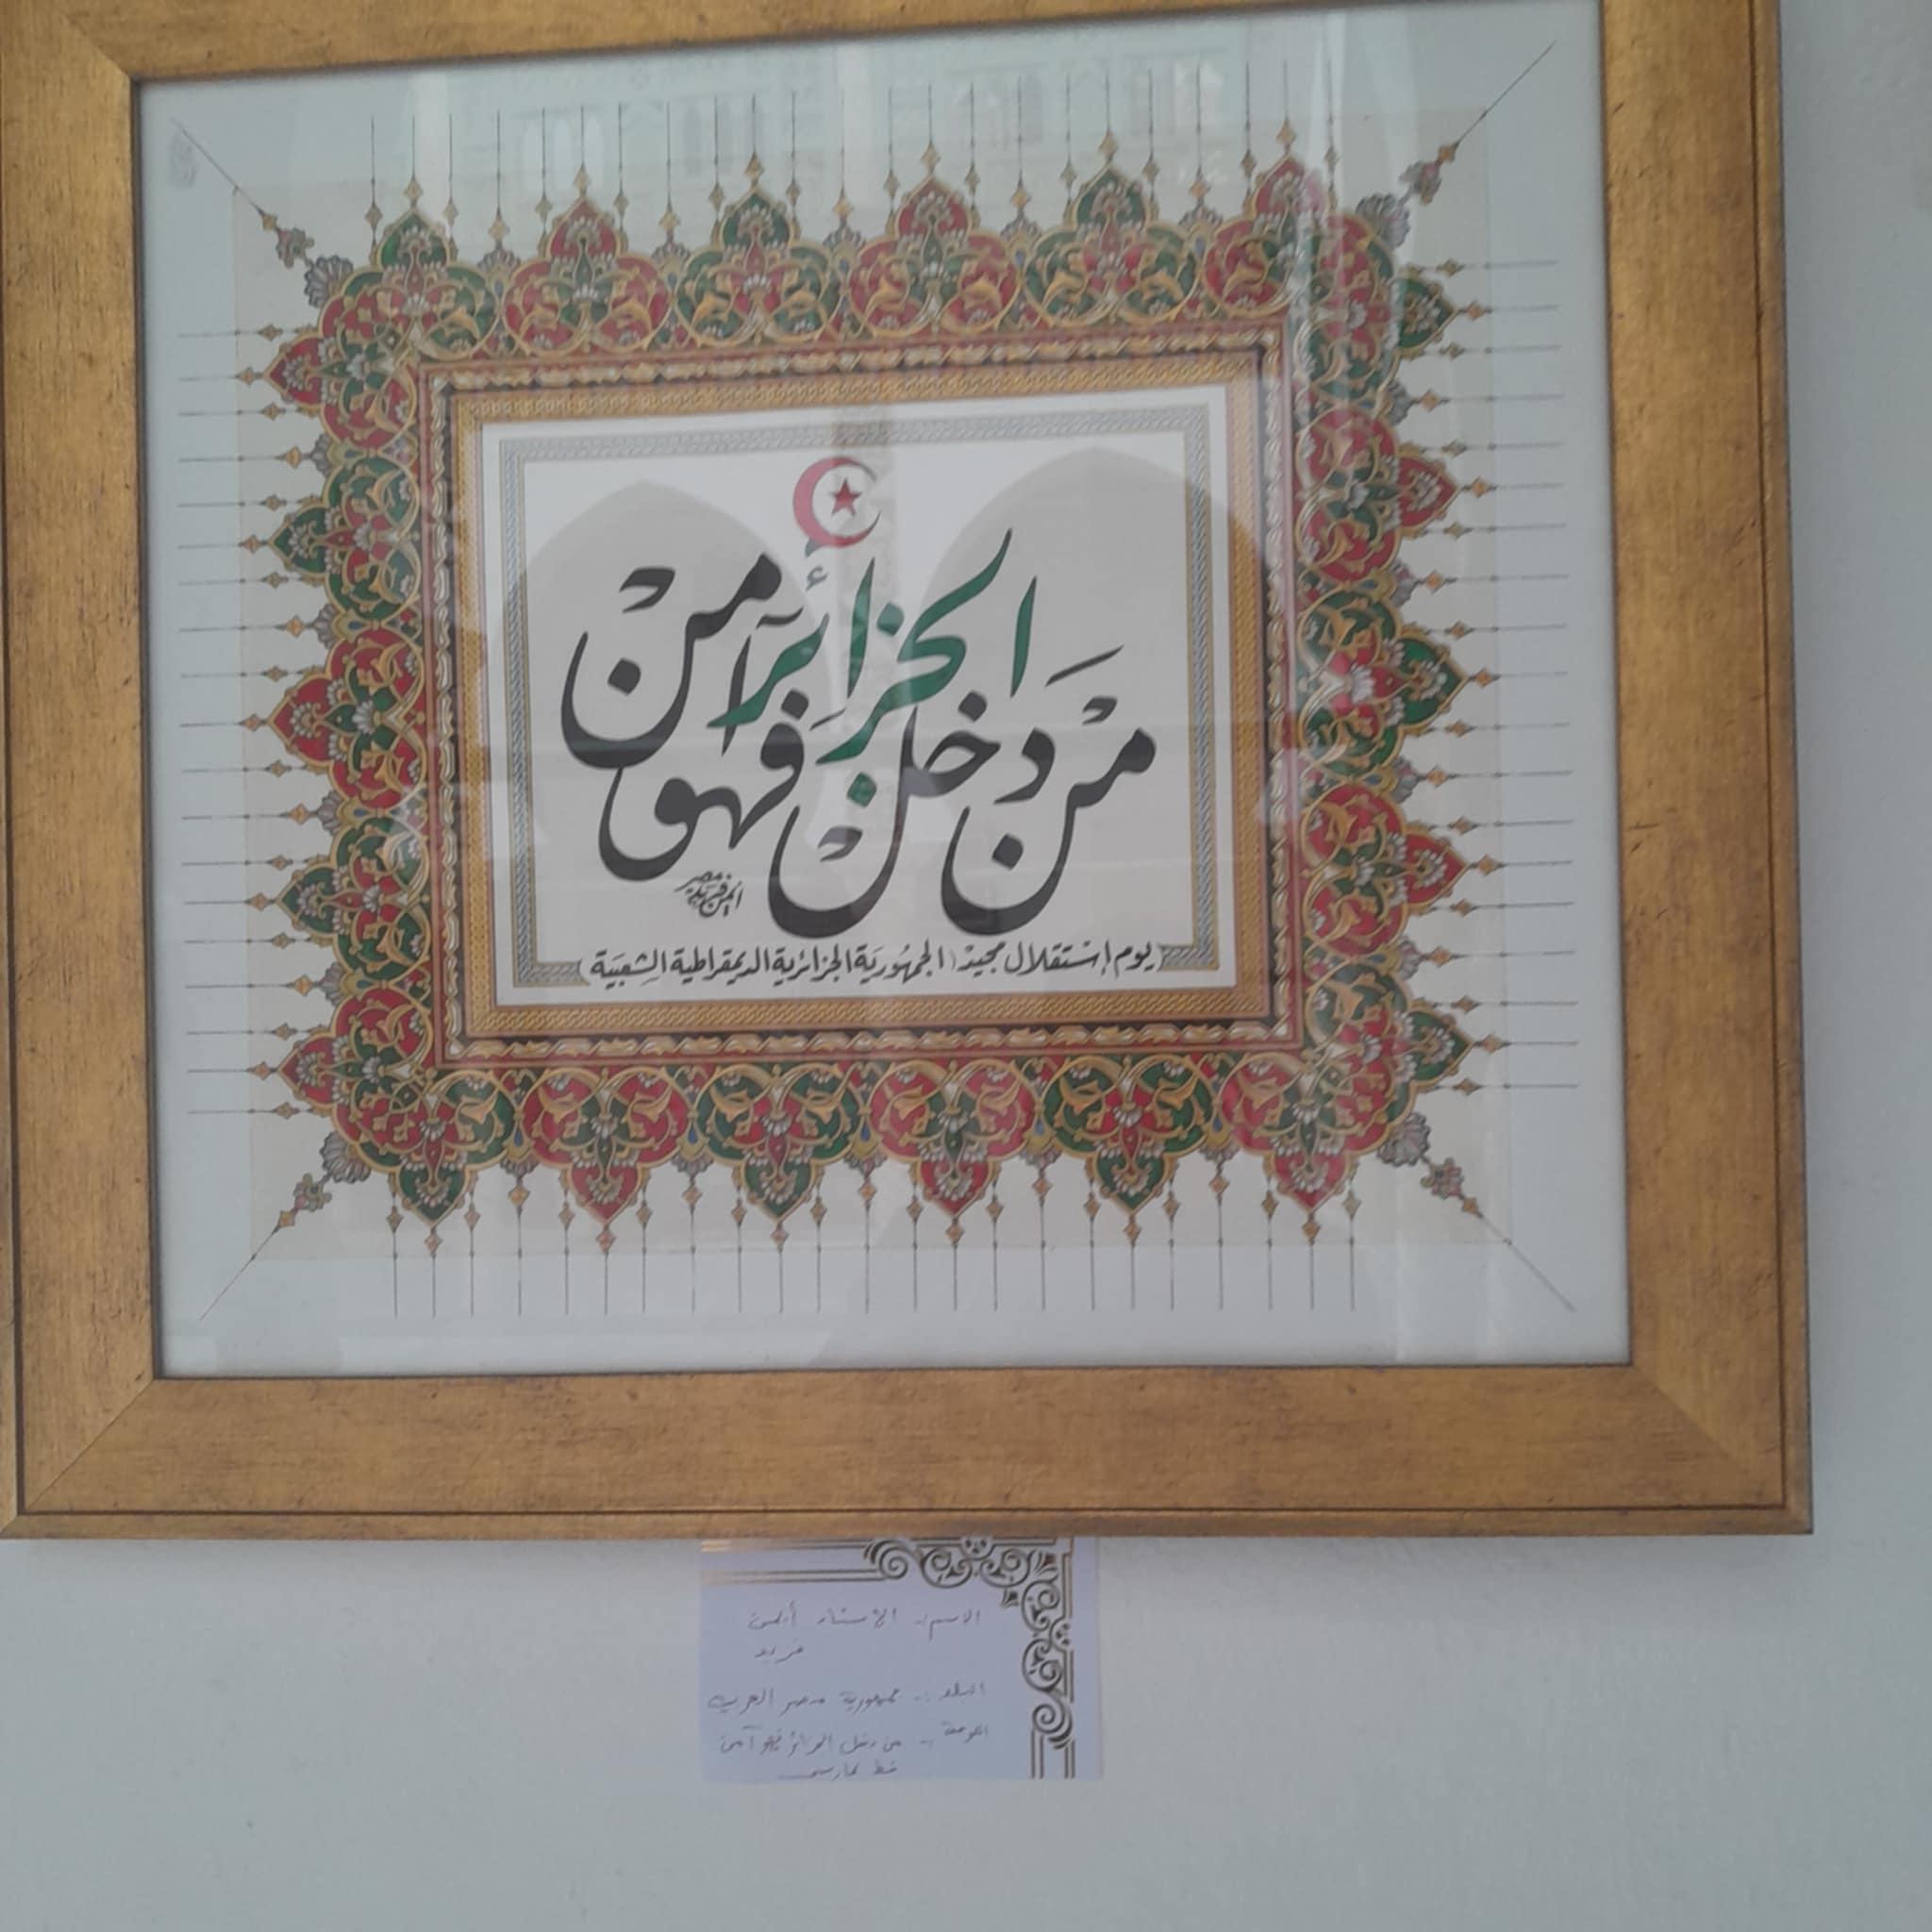 مَنْ دَخَلَ الجزائر فَهُوَ آمِنْ
أيمن فريد مصر
(يوم إستقلال مجيد) (الجمهورية الجزائرية الديمقراطية الشعبية)
الاسم:- الاستاذ أيمن
فريد
البلد:- جمهورية مصر العربية
اللوحة:- من دخل الجزائر فهو آمن
خط فارسي